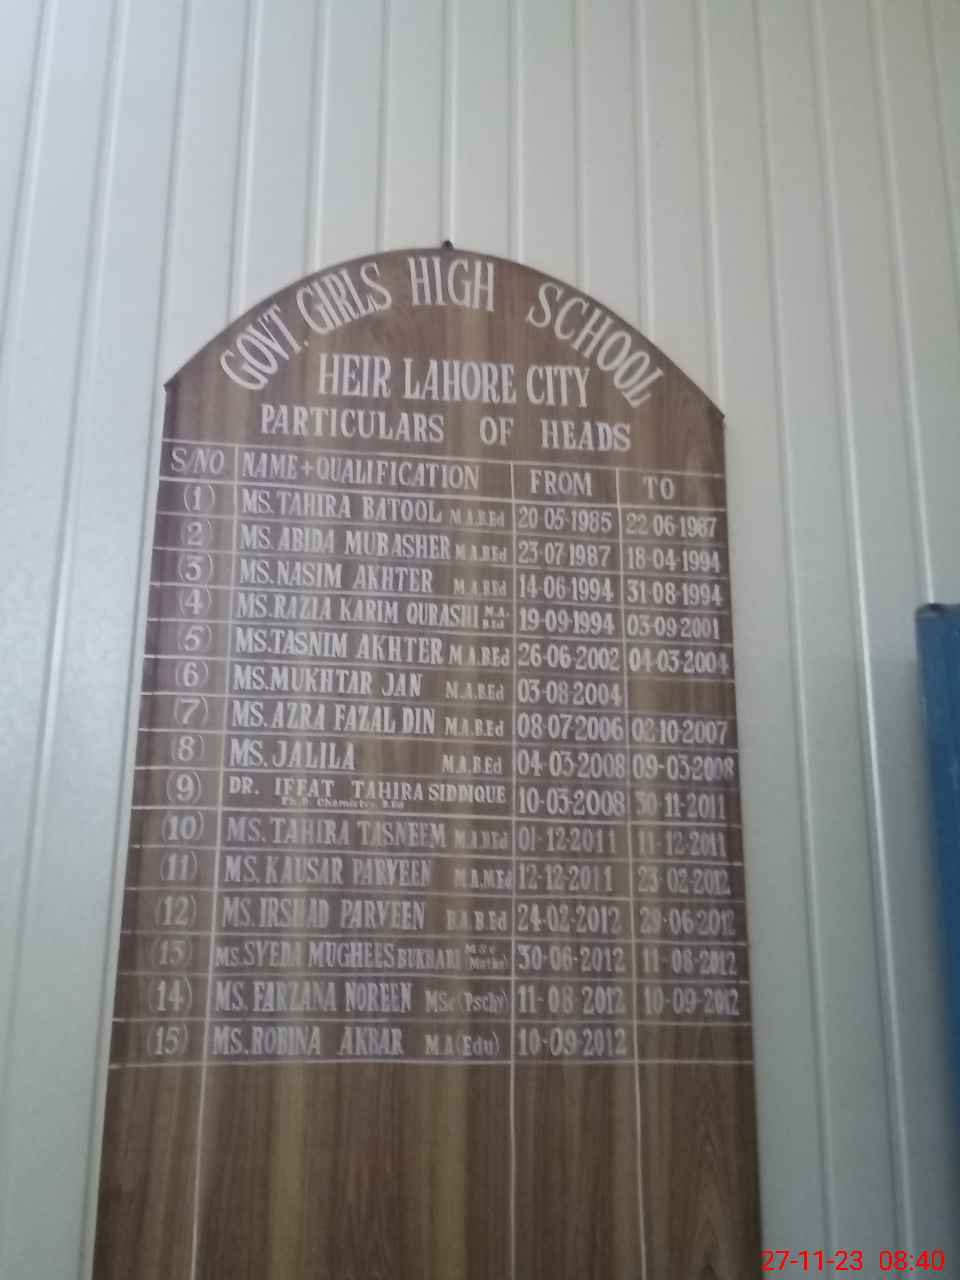 GOVT. GIRLS HIGH SCHOOL
HEIR LAHORE CITY
PARTICULARS OF HEADS
S/NO NAME+QUALIFICATION FROM TO
(1) MS. TAHIRA BATOOL M.A.B.Ed 20-05-1985 22-06-1987
(2) MS. ABIDA MUBASHER M.A.B.Ed 23-07-1987 18-04-1994
(3) MS. NASIM AKHTER M.A.B.Ed 14-06-1994 31-08-1994
(4) MS. RAZIA KARIM QURASHI M.A. B.Ed 19-09-1994 03-09-2001
(5) MS. TASNIM AKHTER M.A.B.Ed 26-06-2002 04-03-2004
(6) MS. MUKHTAR JAN M.A.B.Ed 03-08-2004
(7) MS. AZRA FAZAL DIN M.A.B.Ed 08-07-2006 02-10-2007
(8) MS. JALILA M.A.B.Ed 04-03-2008 09-03-2008
(9) DR. IFFAT TAHIRA SIDDIQUE 10-03-2008 30-11-2011
Ph.D. Chemistry. B.Ed
(10) MS. TAHIRA TASNEEM M.A.B.Ed 01-12-2011 11-12-2011
(11) MS. KAUSAR PARVEEN M.A.M.Ed 12-12-2011 23-02-2012
(12) MS. IRSHAD PARVEEN B.A.B.Ed 24-02-2012 29-06-2012
(13) MS. SYEDA MUGHEES BUKHARI M.Sc (Maths) 30-06-2012 11-08-2012
(14) MS. FARZANA NOREEN MSc(Pschy) 11-08-2012 10-09-2012
(15) MS. ROBINA AKBAR M.A(Edu) 10-09-2012
27-11-23 08:40